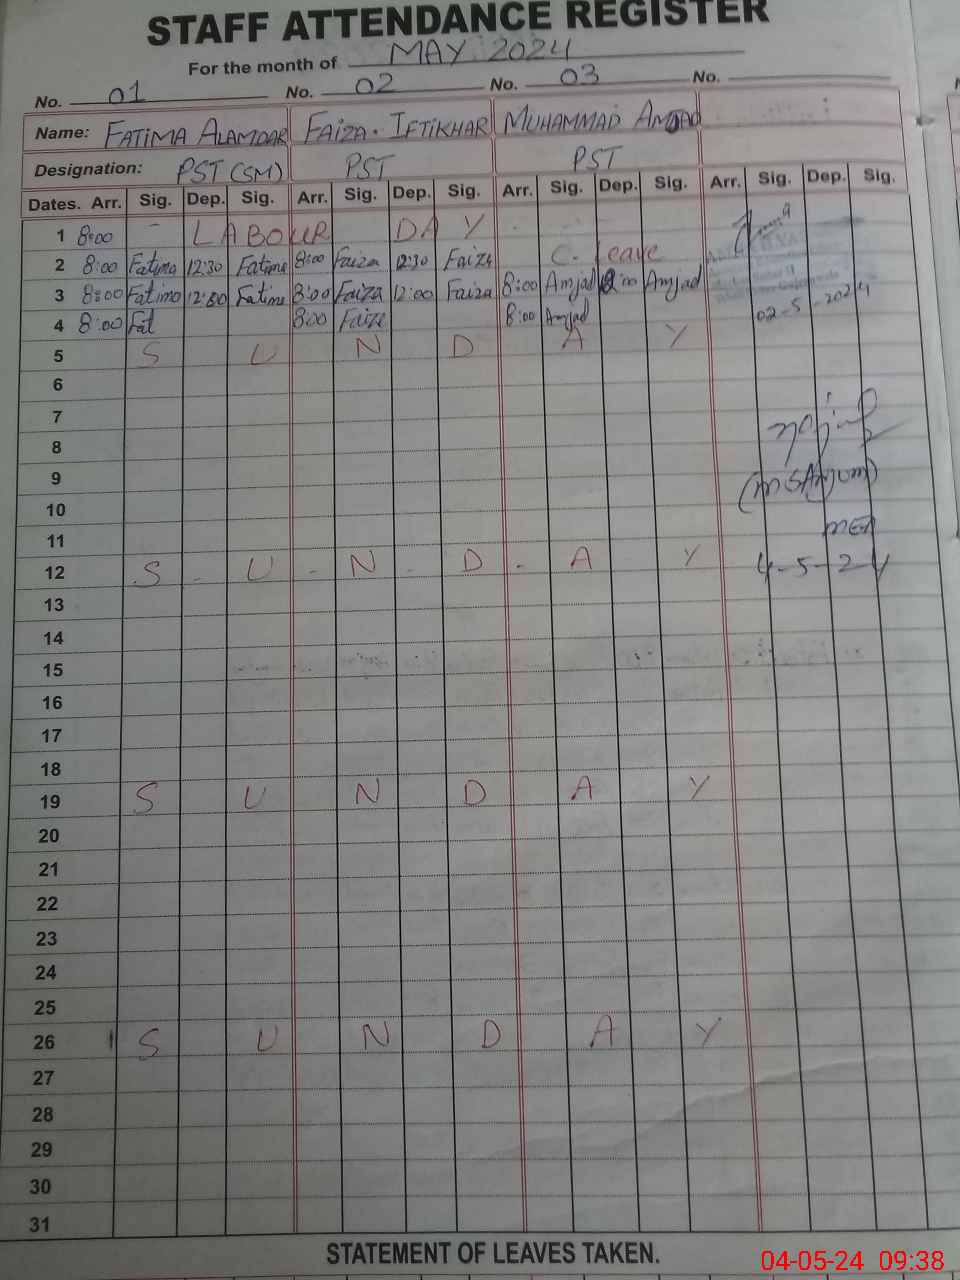 STAFF ATTENDANCE REGISTER
For the month of MAY 2024
No. 01 No. 02 No. 03 No.
Name: FATIMA ALAMDAR FAIZA. IFTIKHAR MUHAMMAD AMJAD
Designation: PST (SM) PST PST
Dates. Arr. Sig. Dep. Sig. Arr. Sig. Dep. Sig. Arr. Sig. Dep. Sig. Arr. Sig. Dep. Sig.
1 8:00 - LABOUR DAY
2 8:00 Fatima 12:30 Fatima 8:00 Faiza 12:30 Faiza C. Leave
3 8:00 Fatima 12:30 Fatima 8:00 Faiza 12:00 Faiza 8:00 Amjad :00 Amjad
02-5-2024
4 8:00 Fat 8:00 Faiza 8:00 Amjad
5 S U N D A Y
6
7
8
9
(MSAnjum)
10
11
MEA
12 S - U - N - D - A Y
4-5-24
13
14
15
16
17
18
19 S U N D A Y
20
21
22
23
24
25
26 S U N D A Y
27
28
29
30
31
STATEMENT OF LEAVES TAKEN.
04-05-24 09:38